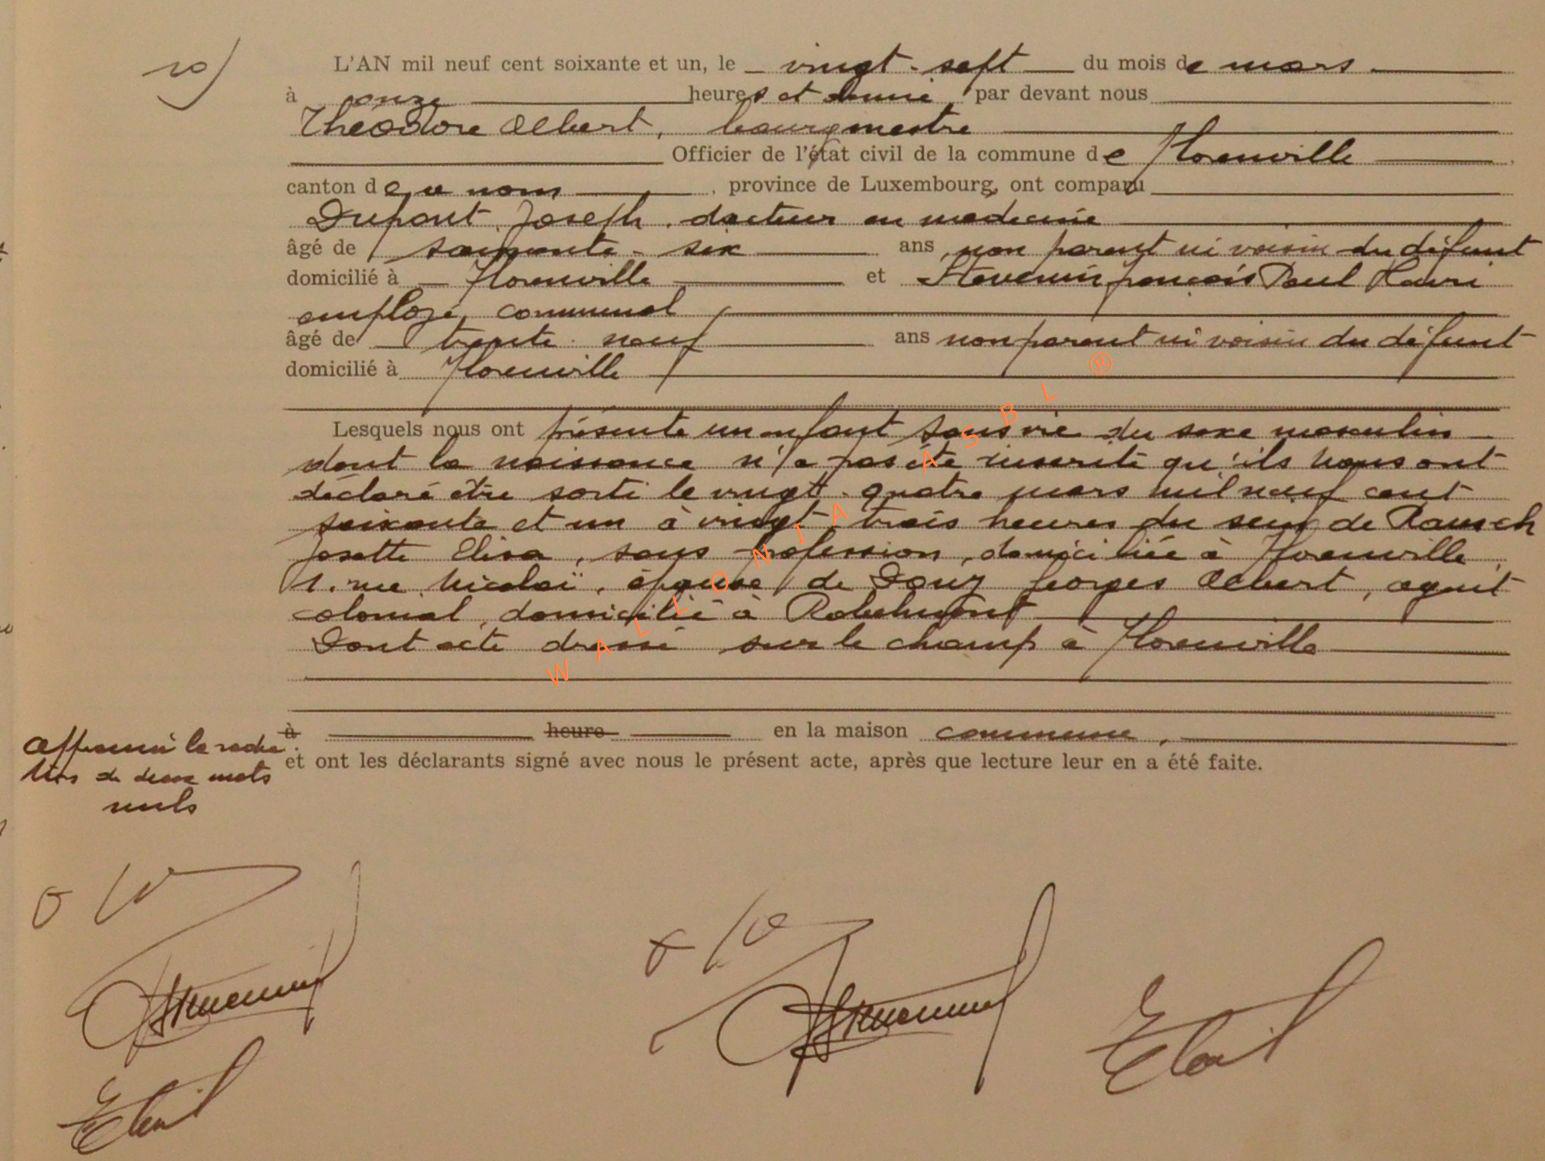 10)
L'AN mil neuf cent soixante et un, le vingt-sept du mois de mars
à onze heures et demie par devant nous
Théodore Albert, bourgmestre
Officier de l'état civil de la commune de Florenville
canton de ce nom, province de Luxembourg, ont comparu
Dupont Joseph, docteur en médecine
âgé de soixante-six ans, non parent ni voisin du défunt
domicilié à Florenville et Stevenin françois Paul Henri
employé communal
âgé de trente-neuf ans non parent ni voisin du défunt
domicilié à Florenville
Lesquels nous ont présenté un enfant sans vie du sexe masculin
dont la naissance n'a pas été inscrite qu'ils nous ont
déclaré être sorti le vingt-quatre mars mil neuf cent
soixante et un à vingt-trois heures du sein de Rausch
Josette Elisa, sans profession, domiciliée à Florenville,
1. rue Nicolaï, épouse de Douy Georges Albert, agent
colonial, domicilié à Robelmont
Dont acte dressé sur le champ à Florenville
à heure en la maison commune,
et ont les déclarants signé avec nous le présent acte, après que lecture leur en a été faite.
Approuvé la radia-
tion de deux mots
nuls
WALLONIA ASBL ®